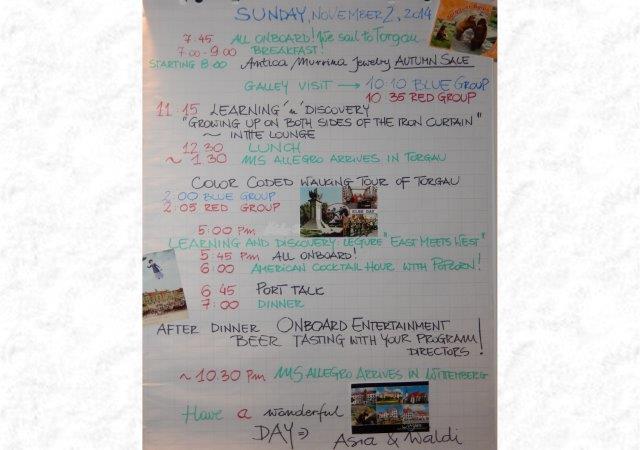 SUNDAY, NOVEMBER 2, 2014
7:45 ALL ONBOARD! We sail to Torgau
7:00-9:00 BREAKFAST!
STARTING 8:00 Antica Murrina Jewelry AUTUMN SALE
GALLEY VISIT → 10:10 BLUE GROUP
10 35 RED GROUP
11:15 LEARNING 'n' DISCOVERY
"GROWING UP ON BOTH SIDES OF THE IRON CURTAIN"
~ IN THE LOUNGE
12.30 LUNCH
~ 1.30 MS ALLEGRO ARRIVES IN TORGAU
COLOR CODED WALKING TOUR OF TORGAU
2:00 BLUE GROUP
2:05 RED GROUP
ELBE DAY
5:00 pm
LEARNING AND DISCOVERY: LECTURE "EAST MEETS WEST"
5:45 pm ALL ONBOARD!
6:00 AMERICAN COCKTAIL HOUR WITH POPCORN!
6 45 PORT TALK
7:00 DINNER
AFTER DINNER ONBOARD ENTERTAINMENT
BEER TASTING WITH YOUR PROGRAM
DIRECTORS!
~ 10.30 pm MS ALLEGRO ARRIVES IN WITTENBERG
Have a wonderful
DAY ⇒ Asia & Waldi